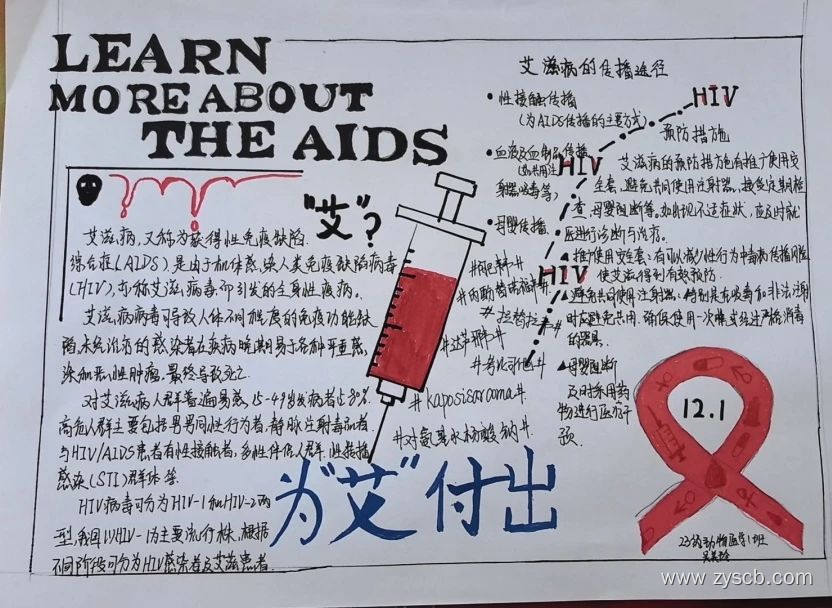 LEARN
MORE ABOUT
THE AIDS
"艾"?
艾滋病,又称为获得性免疫缺陷
综合症(AIDS)是由于机体感染人类免疫缺陷病毒
(HIV),亦称艾滋病毒,而引发的全身性疾病。
艾滋病病毒可导致人体不同程度的免疫功能缺
陷,未经治疗的感染者在疾病晚期易于各种严重感
染和恶性肿瘤,最终导致死亡.
对艾滋病人群普遍易感,15-49岁发病者占80%.
高危人群主要包括男男同性行为者,静脉注射毒品者.
与HIV/AIDS患者有性接触者,多性伴侣人群,性传播
感染(STI)群体等.
HIV病毒可分为HIV-1和HIV-2两
型,我国以HIV-1为主要流行株,根据
不同阶段可分为HIV感染者及艾滋患者.
艾滋病的传播途径
•性接触传播
(为AIDS传播的主要方式)
•血液及血制品传播
(如共用注
射器吸毒等)
•母婴传播
HIV
HIV
HIV
预防措施
艾滋病的预防措施包有推广使用安
全套,避免共同使用注射器,接受定期检
查,母婴阻断等。如出现不适症状,应及时就
医进行诊断与治疗。
▲推广使用安全套:有可以减少性行为中毒病传播风险
使艾滋得到有效预防.
▲避免共同使用注射器:特别是有吸毒和非法注射
时应避免共用.确保使用一次性或经过严格消毒
的器具.
▲母婴阻断
及时采用药
物进行医疗干
预.
#kaposisarcoma#
#对氨基水杨酸钠#
为"艾"付出
12.1
23动物医学1班
www.zyscb.com